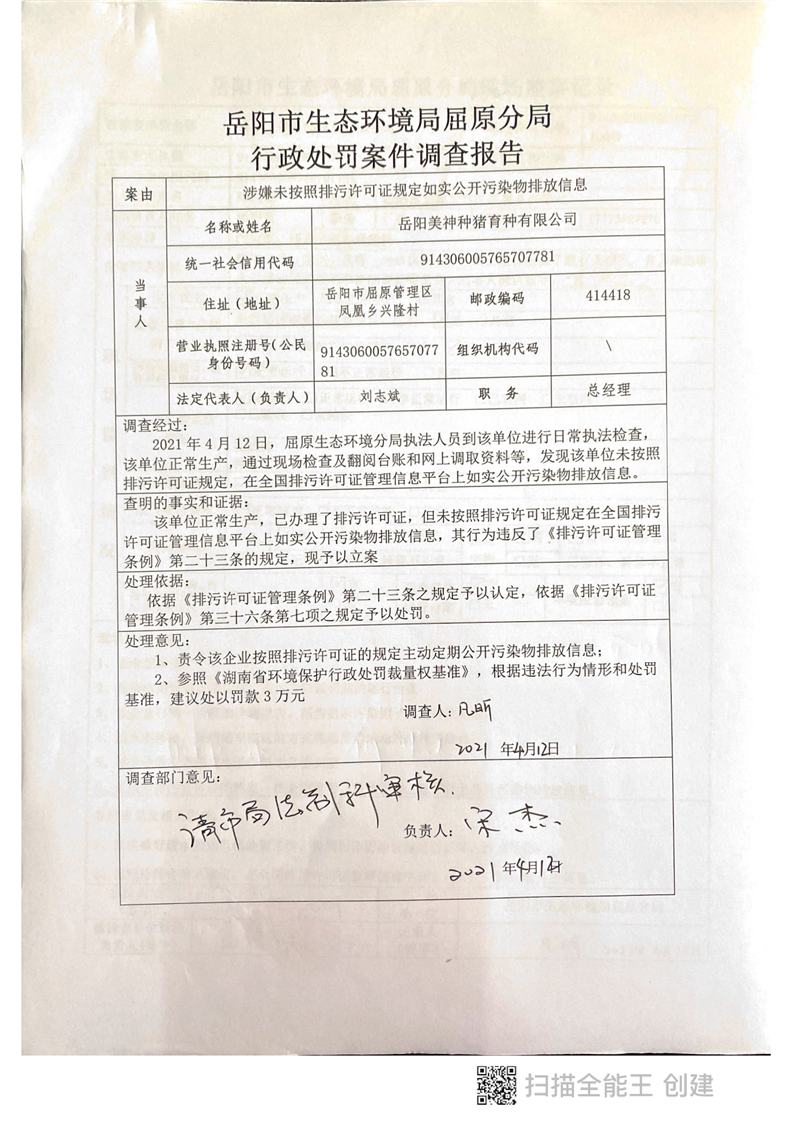 岳阳市生态环境局屈原分局
行政处罚案件调查报告
案由 涉嫌未按照排污许可证规定如实公开污染物排放信息
当事人
名称或姓名 岳阳美神种猪育种有限公司
统一社会信用代码 914306005765707781
住址（地址） 岳阳市屈原管理区
凤凰乡兴隆村
邮政编码 414418
营业执照注册号（公民
身份号码）
9143060057657077
81
组织机构代码 \
法定代表人（负责人） 刘志斌 职 务 总经理
调查经过：
2021年4月12日，屈原生态环境分局执法人员到该单位进行日常执法检查，
该单位正常生产，通过现场检查及翻阅台账和网上调取资料等，发现该单位未按照
排污许可证规定，在全国排污许可证管理信息平台上如实公开污染物排放信息。
查明的事实和证据：
该单位正常生产，已办理了排污许可证，但未按照排污许可证规定在全国排污
许可证管理信息平台上如实公开污染物排放信息，其行为违反了《排污许可证管理
条例》第二十三条的规定，现予以立案
处理依据：
依据《排污许可证管理条例》第二十三条之规定予以认定，依据《排污许可证
管理条例》第三十六条第七项之规定予以处罚。
处理意见：
1、责令该企业按照排污许可证的规定主动定期公开污染物排放信息；
2、参照《湖南省环境保护行政处罚裁量权基准》，根据违法行为情形和处罚
基准，建议处以罚款3万元
调查人：凡昕
2021 年4月12日
调查部门意见：
请市局法制科审核.
负责人：宋杰
2021年4月12日
扫描全能王 创建